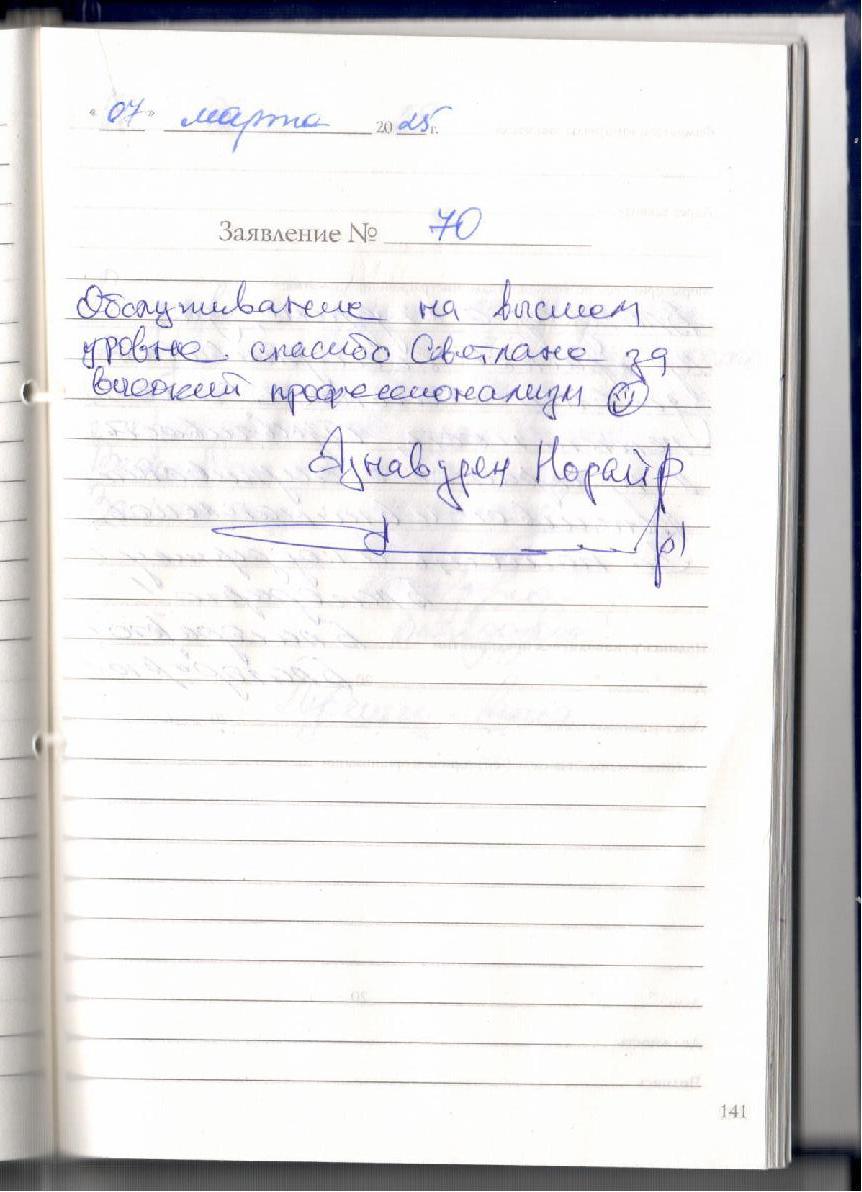 « 07 » марта 20 25 г.
Заявление № 70
Обслуживание на высшем
уровне спасибо Светлане за
высокий профессионализм
Азнавурен Норайр
141